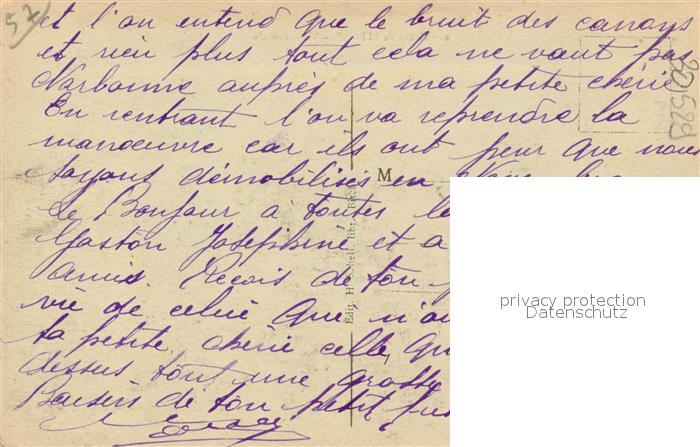 57
et l'on entend que le bruit des canons
et rien plus tout cela ne vaut pas
Narbonne auprès de ma petite chérie
En rentrant l'on va reprendre la
manoeuvre car ils ont peur que nous
soyons démobilisés en
le Bonjour à toutes
Gaston Josephine et a
amis. Reçois de ton
vie de celui que n'ou
ta petite chérie celle qu
dessus tout une grosse
Baisers de ton petit
M
20529
privacy protection
Datenschutz